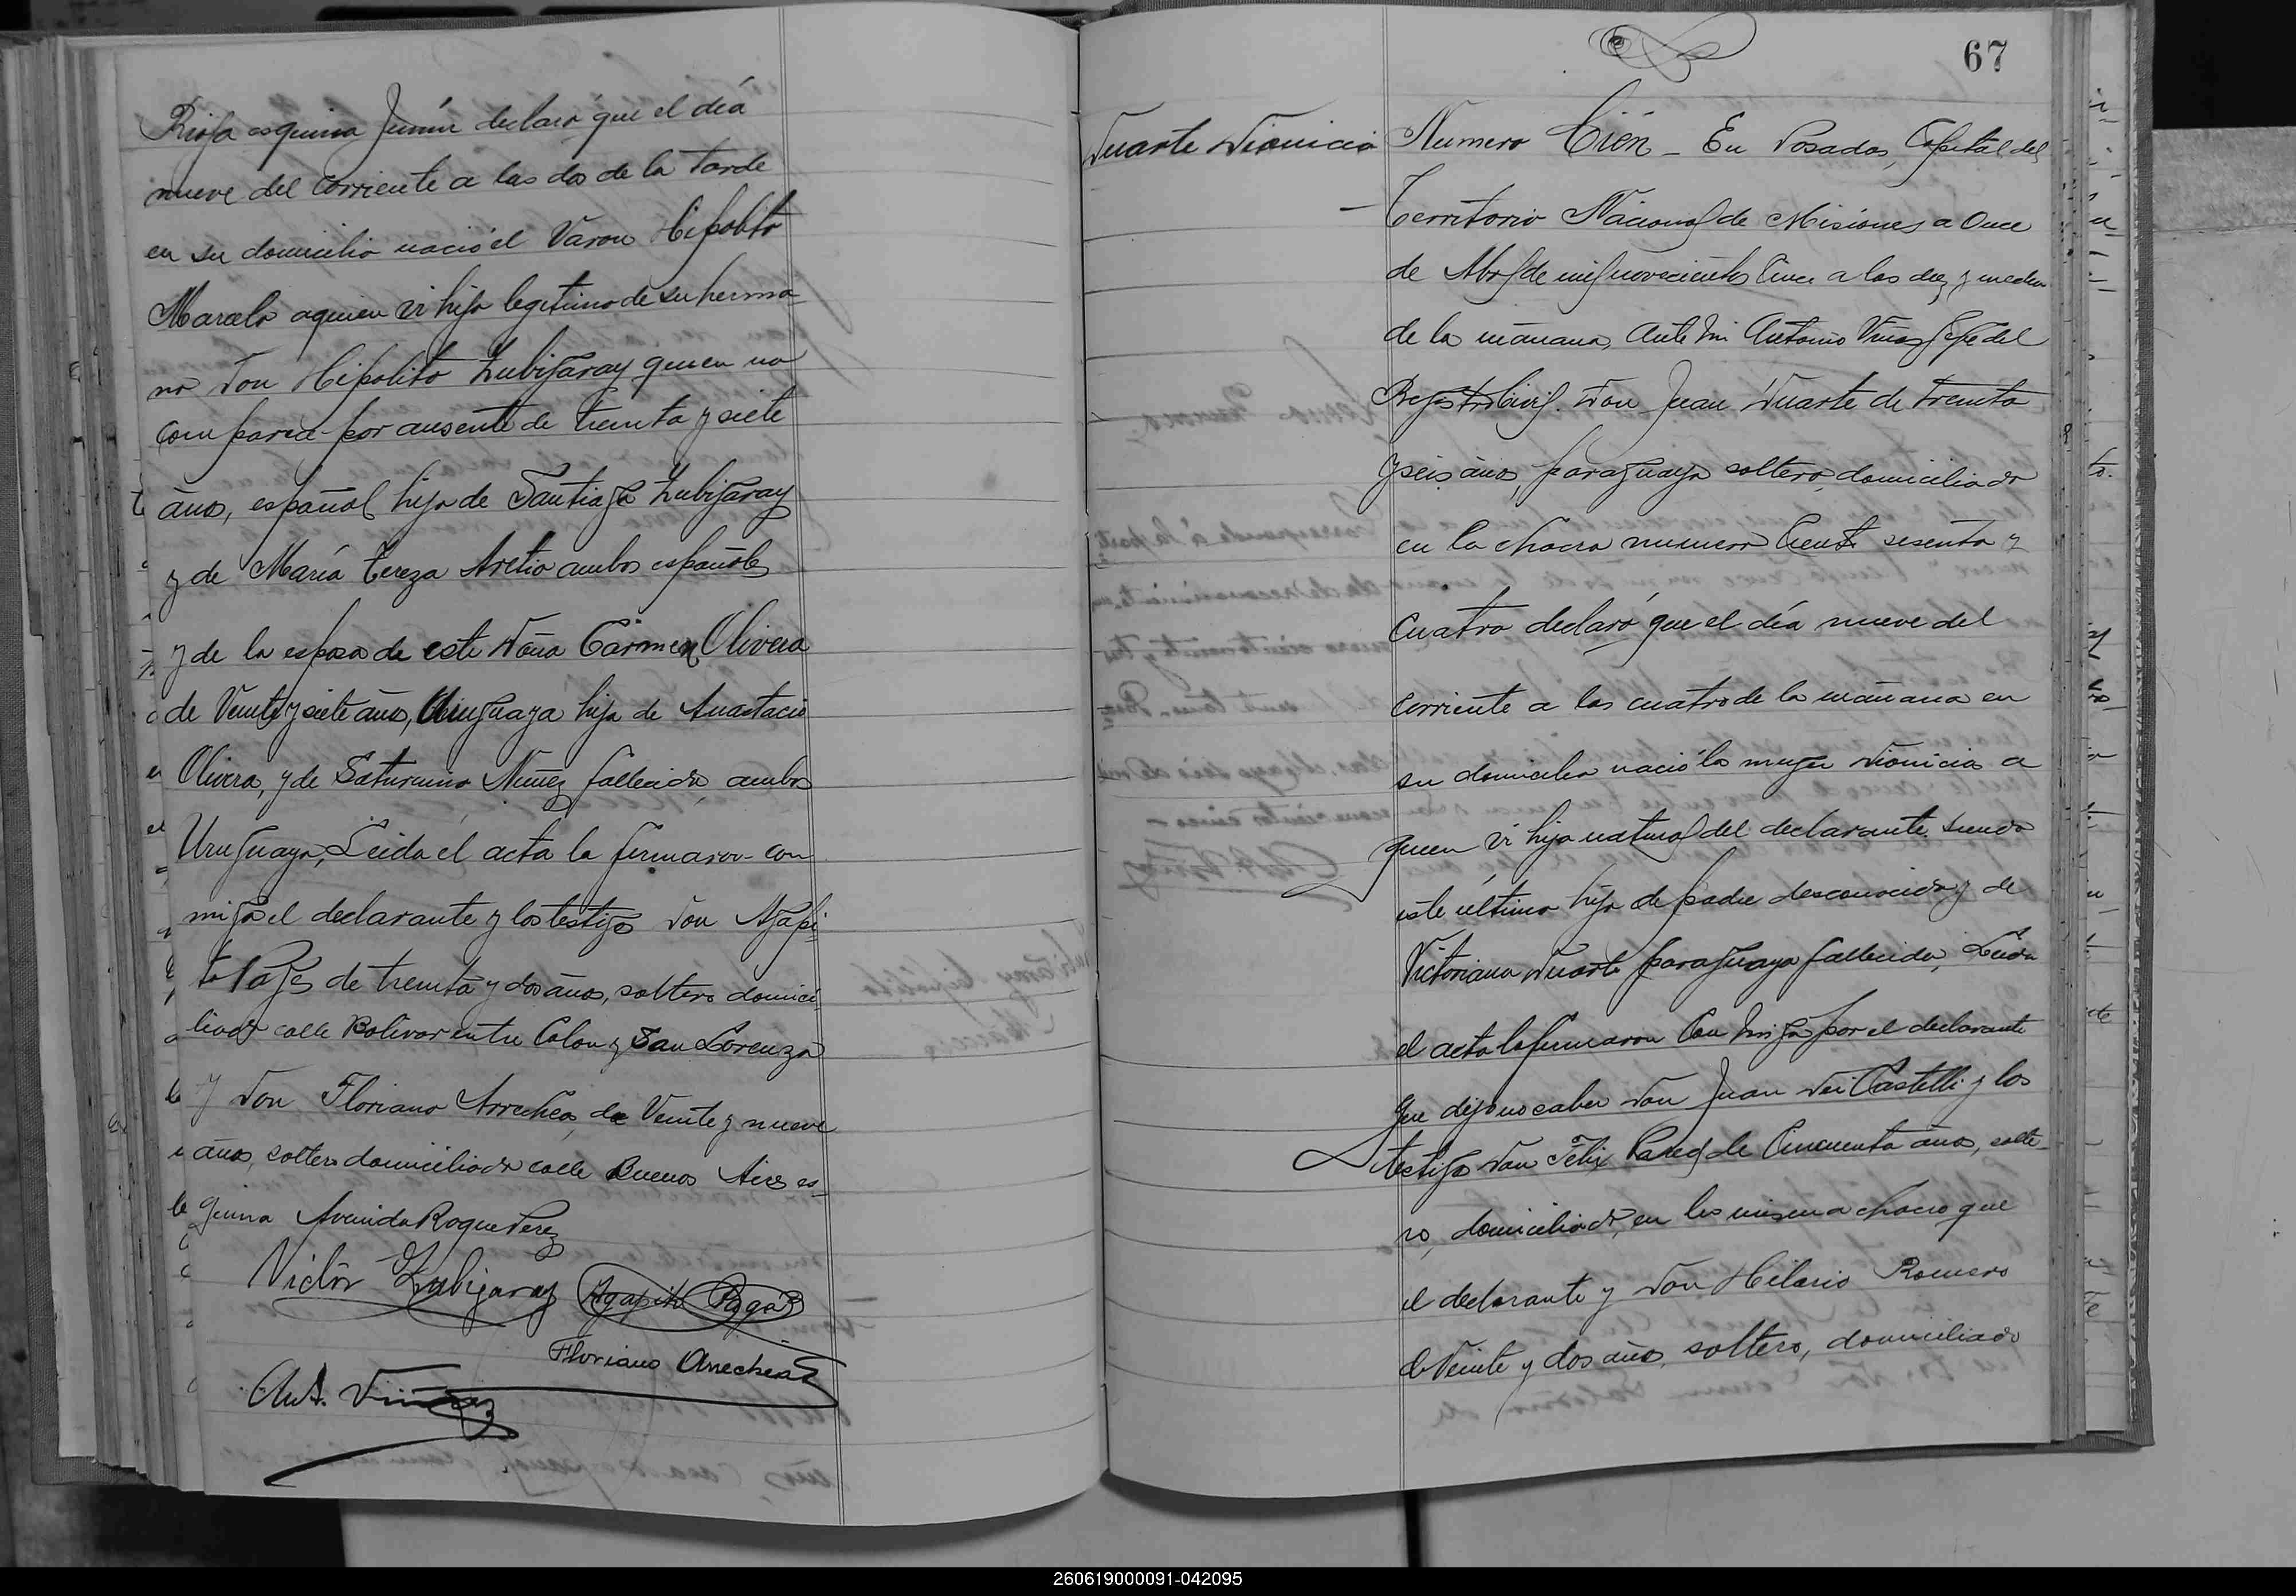 Rioja esquina Junín declaró que el día
nueve del corriente a las dos de la tarde
en su domicilio nació el Varon Hipolito
Marcelo a quien vi hijo legitimo de su herma
no Don Hipolito Lubigaray quien no
comparece por ausente de treinta y siete
años, español hijo de Santiago Lubigaray
y de María Tereza Aretio ambos españoles
y de la esposa de este Doña Cármen Olivera
de Veinte y siete años, Uruguaya hija de Anastacio
Olivera, y de Saturnina Nuñez fallecida, ambos
Uruguayos, Leida el acta la firmaron con
migo el declarante y los testigos Don Agapi
to Pagés de treinta y dos años, soltero domici
liado calle Bolivar entre Colon y San Lorenzo
y Don Floriano Arrechea, de Veinte y nueve
años, soltero domiciliado calle Buenos Aires es-
quina Avenida Roque Perez
Victor Lubigaray Agapito Pagés
Floriano Arrechea
Ant. Viñas
67
Duarte Dionicia
Numero Cién - En Posadas, Capital del
Territorio Nacional de Misiones a Once
de Abril de mil novecientos Cinco a las diez y media
de la mañana, Ante mi Antonio Viñas Jefe del
Registro Civil. Don Juan Duarte de treinta
y seis años, paraguayo soltero, domiciliado
en la chacra numero Ciento sesenta y
cuatro declaró que el día nueve del
corriente a las cuatro de la mañana en
su domicilio nació la mujer Dionicia a
quien vi hija natural del declarante siendo
este último hijo de padre desconocido y de
Victoriana Duarte paraguaya fallecida, Leida
el acta la firmaron Con migo por el declarante
que dijo no saber Don Juan Dei Castelli y los
testigos Don Félix Pared de Cincuenta años, solte-
ro, domiciliado, en la misma chacra que
el declarante y Don Hilario Romero
de Veinte y dos años, soltero, domiciliado
260619000091-042095